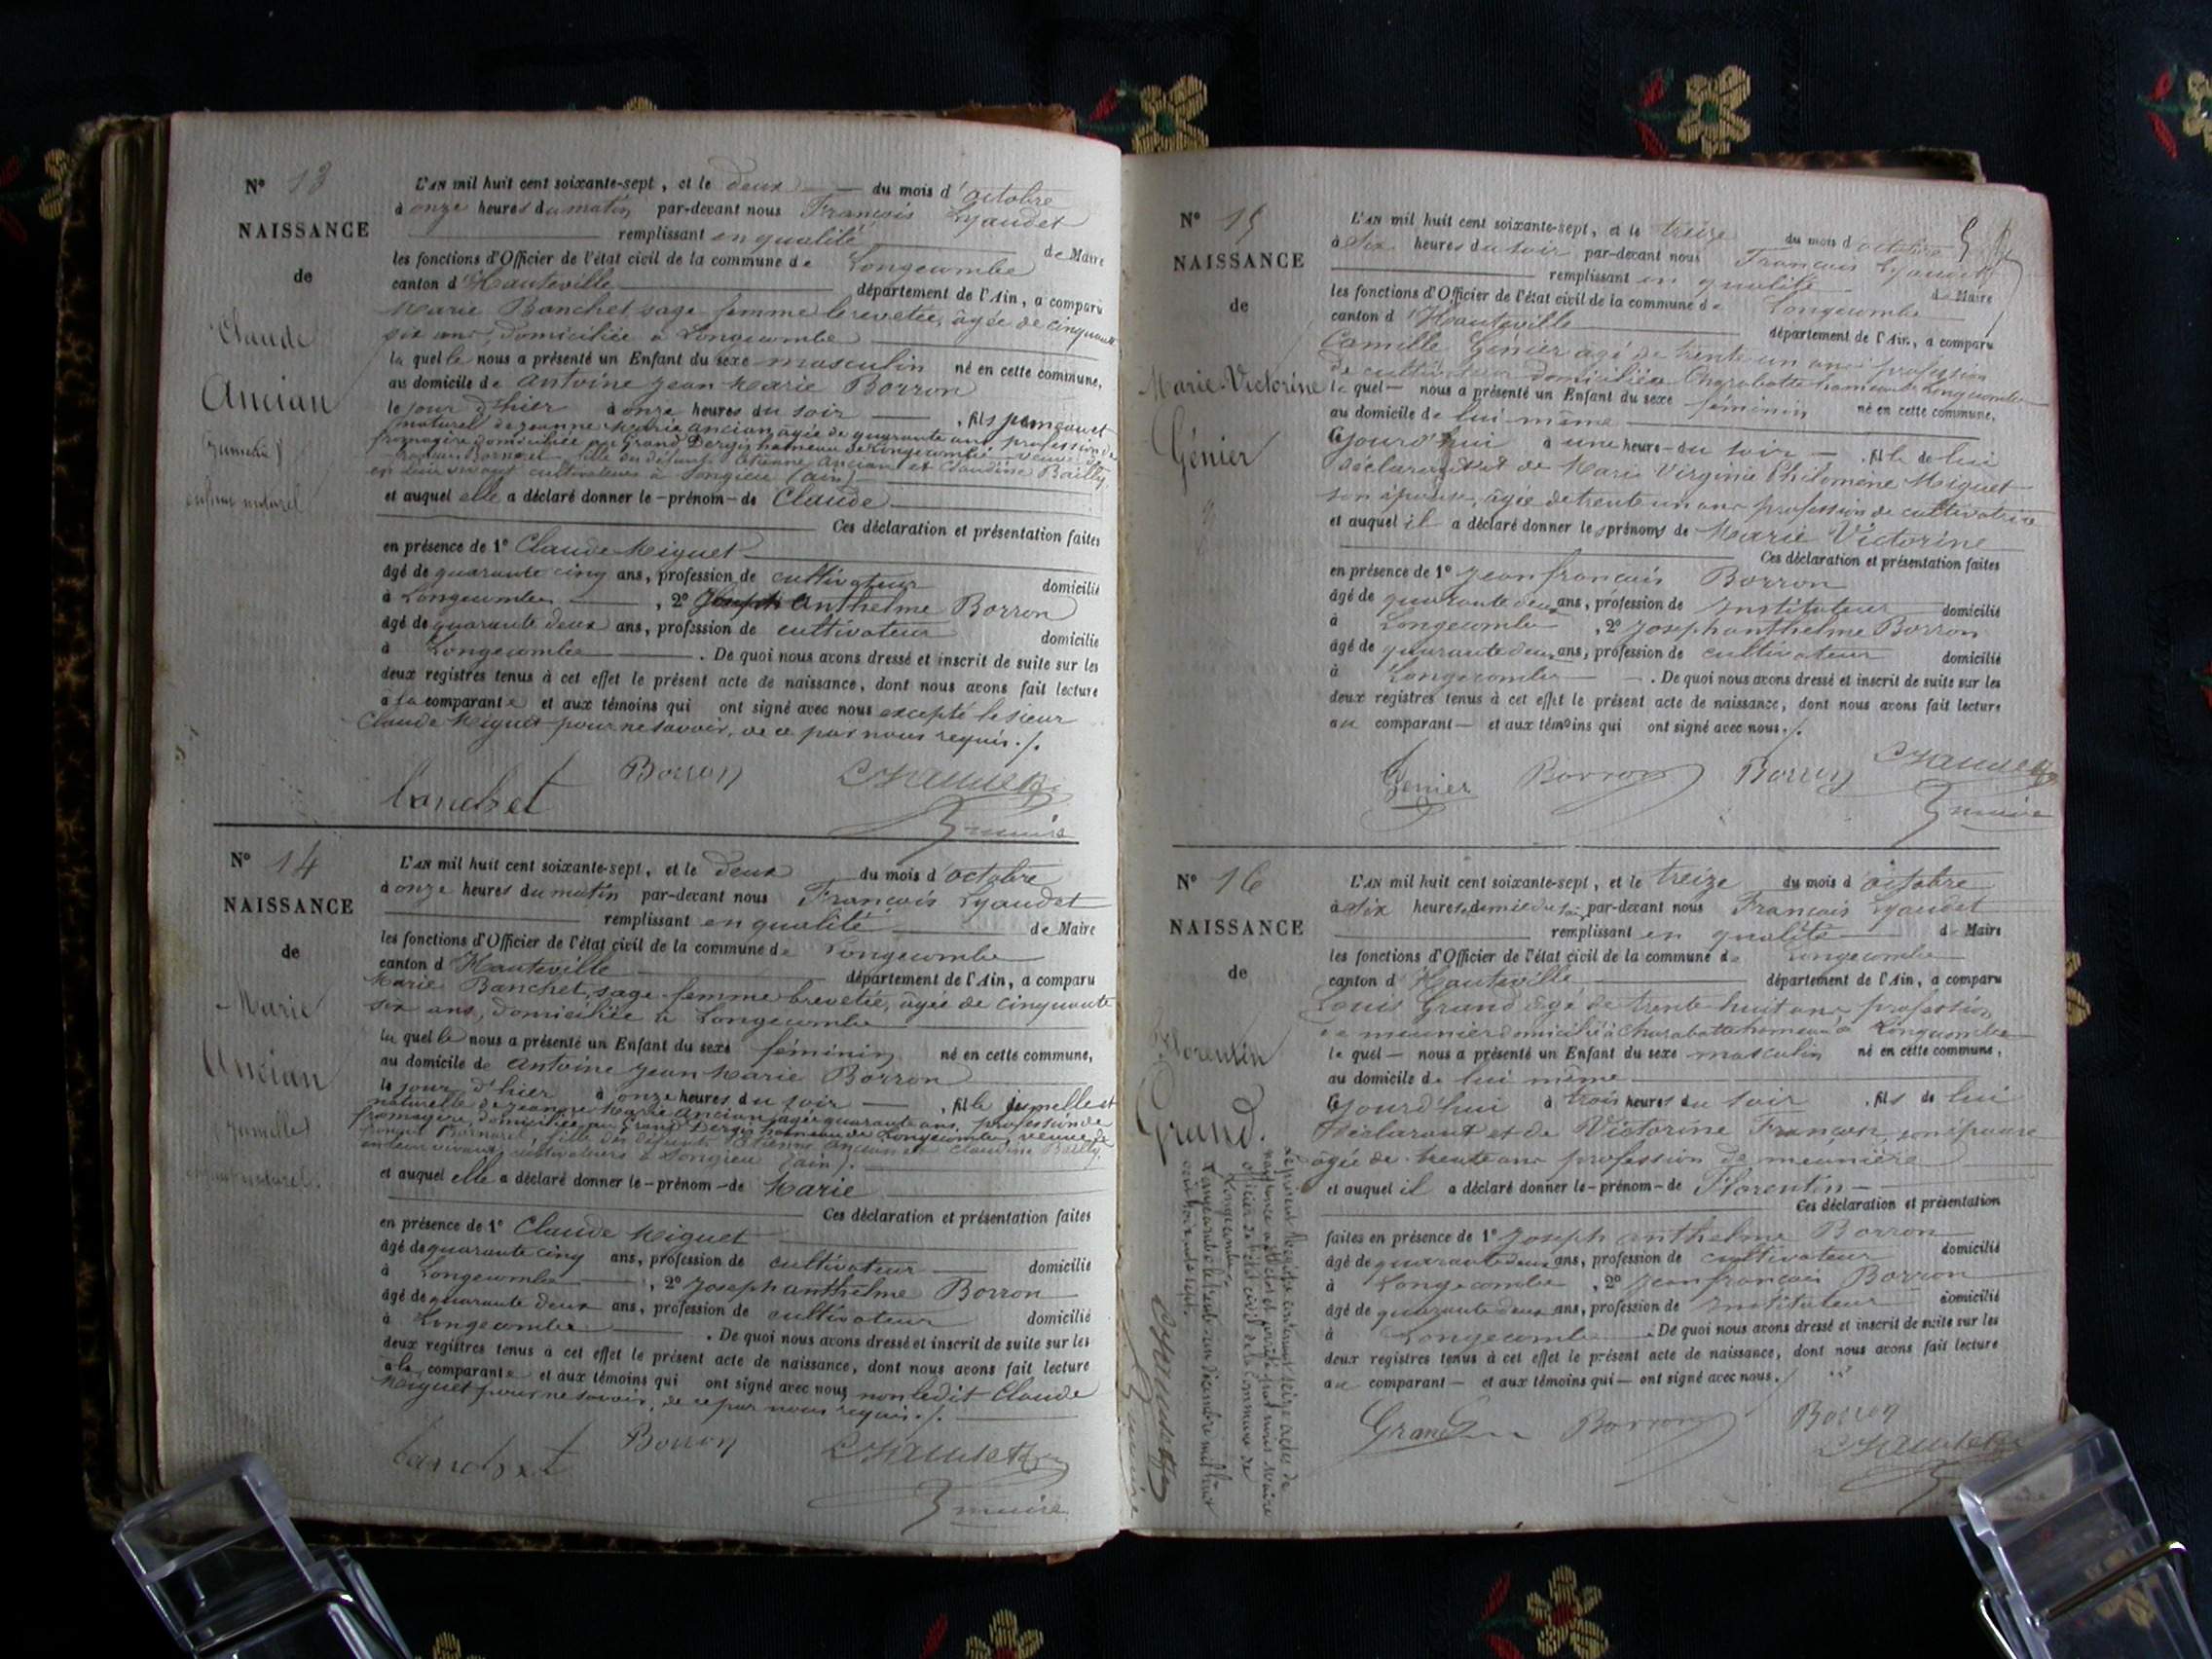 N° 13
NAISSANCE
de
Claude
Ancian
jumeau
enfant naturel
L'AN mil huit cent soixante-sept, et le deux du mois d'octobre
à onze heures du matin par-devant nous François Lyaudet
remplissant en qualité de Maire
les fonctions d'Officier de l'état civil de la commune de Longecombe
canton d'Hauteville département de l'Ain, a comparu
Marie Banchet, sage femme brevetée, âgée de cinquante
six ans, domiciliée à Longecombe
la quelle nous a présenté un Enfant du sexe masculin né en cette commune,
au domicile de Antoine Jean Marie Borron
le jour d'hier à onze heures du soir , fils jumeau et
naturel de Jeanne Marie Ancian, âgée de quarante ans, profession de
fromagère, domiciliée au Grand Dergis hameau de Longecombe, veuve de
Bornarel, fille des défunts Etienne Ancian et Claudine Bailly,
en leur vivant cultivateurs à Songieu (ain)
et auquel elle a déclaré donner le - prénom - de Claude
Ces déclaration et présentation faites
en présence de 1° Claude Miguet
âgé de quarante cinq ans, profession de cultivateur domicilié
à Longecombe , 2° Joseph anthelme Borron
âgé de quarante deux ans, profession de cultivateur domicilié
à Longecombe . De quoi nous avons dressé et inscrit de suite sur les
deux registres tenus à cet effet le présent acte de naissance, dont nous avons fait lecture
à la comparante et aux témoins qui ont signé avec nous excepté le sieur
Claude Miguet pour ne savoir, de ce par nous requis ./.
banchet Borron Lyaudet
maire
N° 14
NAISSANCE
de
Marie
Ancian
jumelle
enfant naturel.
L'AN mil huit cent soixante-sept, et le deux du mois d'octobre
à onze heures du matin par-devant nous François Lyaudet
remplissant en qualité de Maire
les fonctions d'Officier de l'état civil de la commune de Longecombe
canton d'Hauteville département de l'Ain, a comparu
Marie Banchet, sage-femme brevetée, âgée de cinquante
six ans, domiciliée à Longecombe
la quelle nous a présenté un Enfant du sexe féminin né en cette commune,
au domicile de Antoine Jean Marie Borron
le jour d'hier à onze heures du soir , fille jumelle et
naturelle de Jeanne Marie Ancian, âgée quarante ans, profession de
fromagère, domiciliée au Grand Dergis hameau de Longecombe, veuve de
Bornarel, fille des défunts Etienne Ancian et Claudine Bailly,
en leur vivant cultivateurs à Songieu (ain).
et auquel elle a déclaré donner le - prénom - de Marie
Ces déclaration et présentation faites
en présence de 1° Claude Miguet
âgé de quarante cinq ans, profession de cultivateur domicilié
à Longecombe , 2° Joseph anthelme Borron
âgé de quarante deux ans, profession de cultivateur domicilié
à Longecombe . De quoi nous avons dressé et inscrit de suite sur les
deux registres tenus à cet effet le présent acte de naissance, dont nous avons fait lecture
à la comparante et aux témoins qui ont signé avec nous non ledit Claude
Miguet pour ne savoir, de ce par nous requis ./.
banchet Borron Lyaudet
maire
N° 15
NAISSANCE
de
Marie-Victorine
Génier
L'AN mil huit cent soixante-sept, et le treize du mois d'octobre
à six heures du soir par-devant nous François Lyaudet
remplissant en qualité de Maire
les fonctions d'Officier de l'état civil de la commune de Longecombe
canton d'Hauteville département de l'Ain, a comparu
Camille Génier âgé de trente un ans profession
de cultivateur domicilié à Charabotte hameau de Longecombe
le quel — nous a présenté un Enfant du sexe féminin né en cette commune,
au domicile de lui même
cejourd'hui à une heure du soir — , fille de lui
déclarant et de Marie Virginie Philomène Miguet
son épouse, âgée de trente un ans profession de cultivatrice
et auquel il a déclaré donner les prénoms de Marie Victorine
Ces déclaration et présentation faites
en présence de 1° Jean françois Borron
âgé de quarante deux ans, profession de Instituteur domicilié
à Longecombe , 2° Joseph anthelme Borron
âgé de quarante deux ans, profession de cultivateur domicilié
à Longecombe . De quoi nous avons dressé et inscrit de suite sur les
deux registres tenus à cet effet le présent acte de naissance, dont nous avons fait lecture
au comparant — et aux témoins qui ont signé avec nous ./.
Genier Borron Borron Lyaudet
maire
N° 16
NAISSANCE
de
Florentin
Grand.
L'AN mil huit cent soixante-sept, et le treize du mois d'octobre
à six heures et demie du soir par-devant nous François Lyaudet
remplissant en qualité de Maire
les fonctions d'Officier de l'état civil de la commune de Longecombe
canton d'Hauteville département de l'Ain, a comparu
Louis Grand âgé de trente-huit ans profession
de meunier domicilié à Charabotte hameau de Longecombe
le quel — nous a présenté un Enfant du sexe masculin né en cette commune,
au domicile de lui même
cejourd'hui à trois heures du soir , fils de lui
déclarant et de Victorine Françon, son épouse
âgée de trente ans profession de meunière
et auquel il a déclaré donner le - prénom - de Florentin —
Ces déclaration et présentation
faites en présence de 1° Joseph anthelme Borron
âgé de quarante deux ans, profession de cultivateur domicilié
à Longecombe , 2° Jean françois Borron
âgé de quarante deux ans, profession de Instituteur domicilié
à Longecombe . De quoi nous avons dressé et inscrit de suite sur les
deux registres tenus à cet effet le présent acte de naissance, dont nous avons fait lecture
au comparant — et aux témoins qui — ont signé avec nous ./.
Grand Borron Borron
Lyaudet
Le présent Registre contenant seize actes de
naissance a été clos et arrêté par nous maire
officier de l'état civil de la commune de
Longecombe
Longecombe le trente-un décembre mil huit
cent soixante sept.
Lyaudet
maire